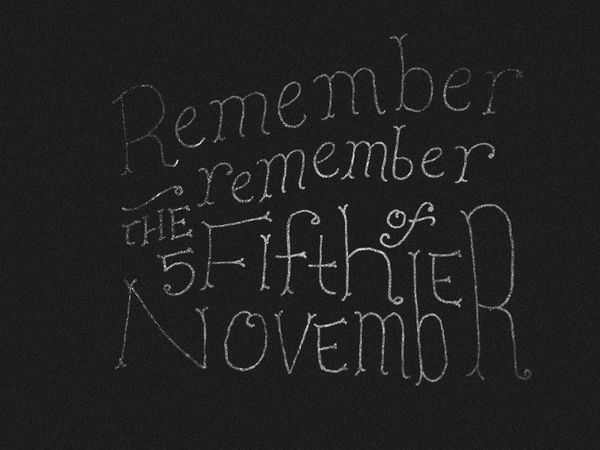 Remember
remember
THE 5 Fifth of
NovembER